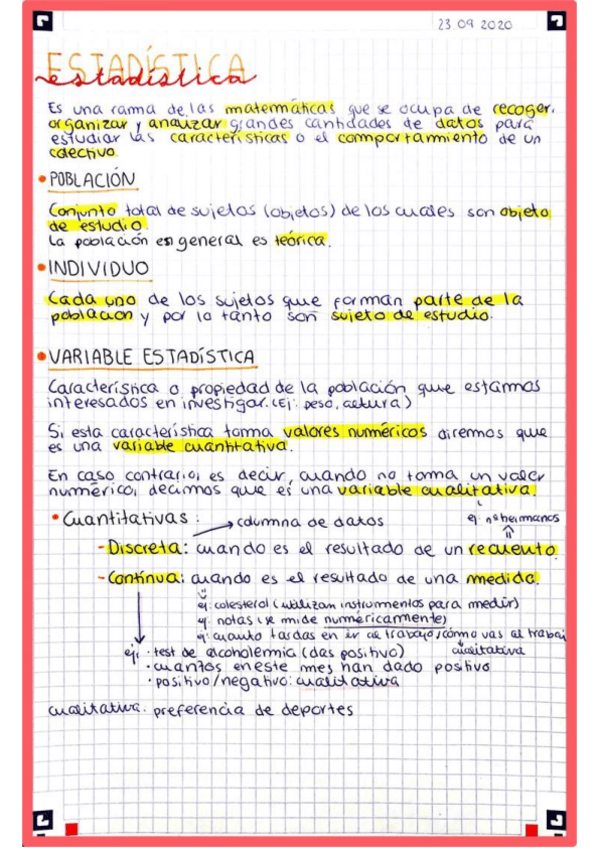 23.09.2020
ESTADÍSTICA
estadística
Es una rama de las matemáticas que se ocupa de recoger,
organizar y analizar grandes cantidades de datos para
estudiar las características o el comportamiento de un
colectivo.
• POBLACIÓN
Conjunto total de sujetos (objetos) de los cuales son objeto
de estudio.
La población en general es teórica.
• INDIVIDUO
Cada uno de los sujetos que forman parte de la
población y por lo tanto son sujeto de estudio.
• VARIABLE ESTADÍSTICA
Característica o propiedad de la población que estamos
interesados en investigar. (Ej: peso, altura)
Si esta característica toma valores numéricos diremos que
es una variable cuantitativa.
En caso contrario, es decir, cuando no toma un valor
numérico, decimos que es una variable cualitativa.
• Cuantitativas: → columna de datos ej: nº hermanos
- Discreta: cuando es el resultado de un recuento.
- Continua: cuando es el resultado de una medida.
ej: colesterol (utilizan instrumentos para medir)
ej: notas (se mide numéricamente)
ej: cuanto tardas en ir al trabajo/cómo vas al trabaj
cualitativa
ej: • test de alcoholemia (das positivo)
• cuantos en este mes han dado positivo
• positivo/negativo: cualitativa
cualitativa: preferencia de deportes